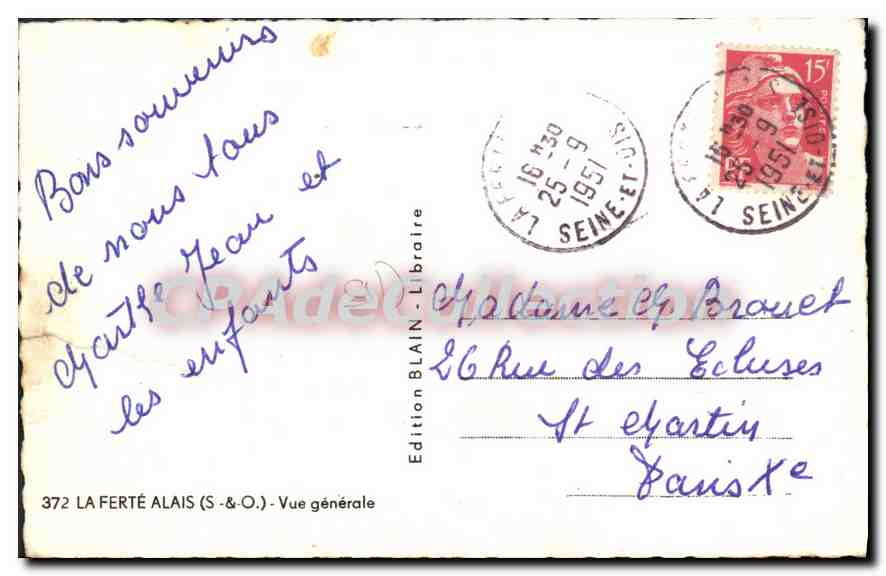 Bons souvenirs
de nous tous
Marthe Jean et
les enfants
372 LA FERTÉ ALAIS (S-&-O.) - Vue générale
Edition BLAIN - Libraire
15F
LA FERTE
16 H 30
25 - 9
1951
SEINE-ET-OISE
LA FERTE
16 H 30
25 - 9
1951
SEINE-ET-OISE
Madame M Brouet
26 Rue des Ecluses
St Martin
Paris Xe
CPAdeCollection